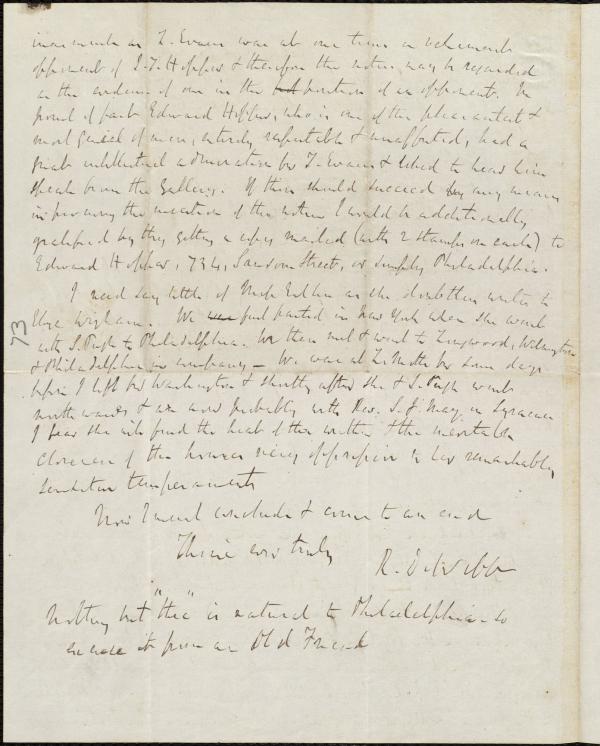 inasmuch as T. Evans was at one time a vehement
opponent of I. T. Hopper & therefore the notice may be regarded
as the evidence of one in the position of an opponent. In
proof of fact Edward Hopper, who is one of the pleasantest &
most genial of men, entirely respectable & unaffected, had a
great intellectual admiration for T. Evans & liked to hear him
speak from the Gallery. If thou should succeed by any means
in procuring the insertion of the notice I would be additionally
gratified by thy getting a copy mailed (with 2 stamps on each) to
Edward Hopper, 734, Sansom Street, or simply Philadelphia.
I need say little of Miss Estlin as she doubtless writes to
Eliza Wigham. We first parted in New York when she went
with S. Pugh to Philadelphia. We then met & went to Longwood, Wilmington
& Philadelphia in company — We were at L. Mott's for some days
before I left for Washington & shortly after she & S. Pugh went
northwards & are now probably with Rev. S. J. May in Syracuse
I fear she will find the heat of the weather & the inevitable
closeness of the houses very oppressive to her remarkably
sensitive temperament
Now I must conclude & come to an end
Thine very truly
R. D. Webb
Nothing but "thee" is natural to Philadelphia - so
excuse it from an Old Friend
73